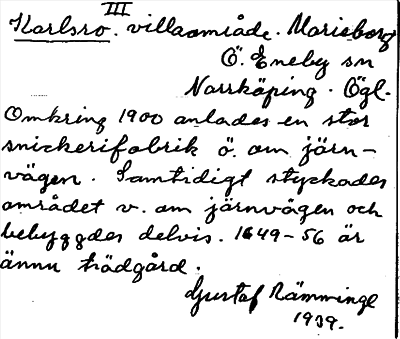 III
Karlsro. villaområde. Marieborg
Ö. Eneby sn
Norrköping. Ögl.
Omkring 1900 anlades en stor
snickerifabrik ö. om järn-
vägen. Samtidigt styckades
området v. om järnvägen och
bebyggdes delvis. 1649-56 är
ännu trädgård.
Gustaf Rämminge
1939.